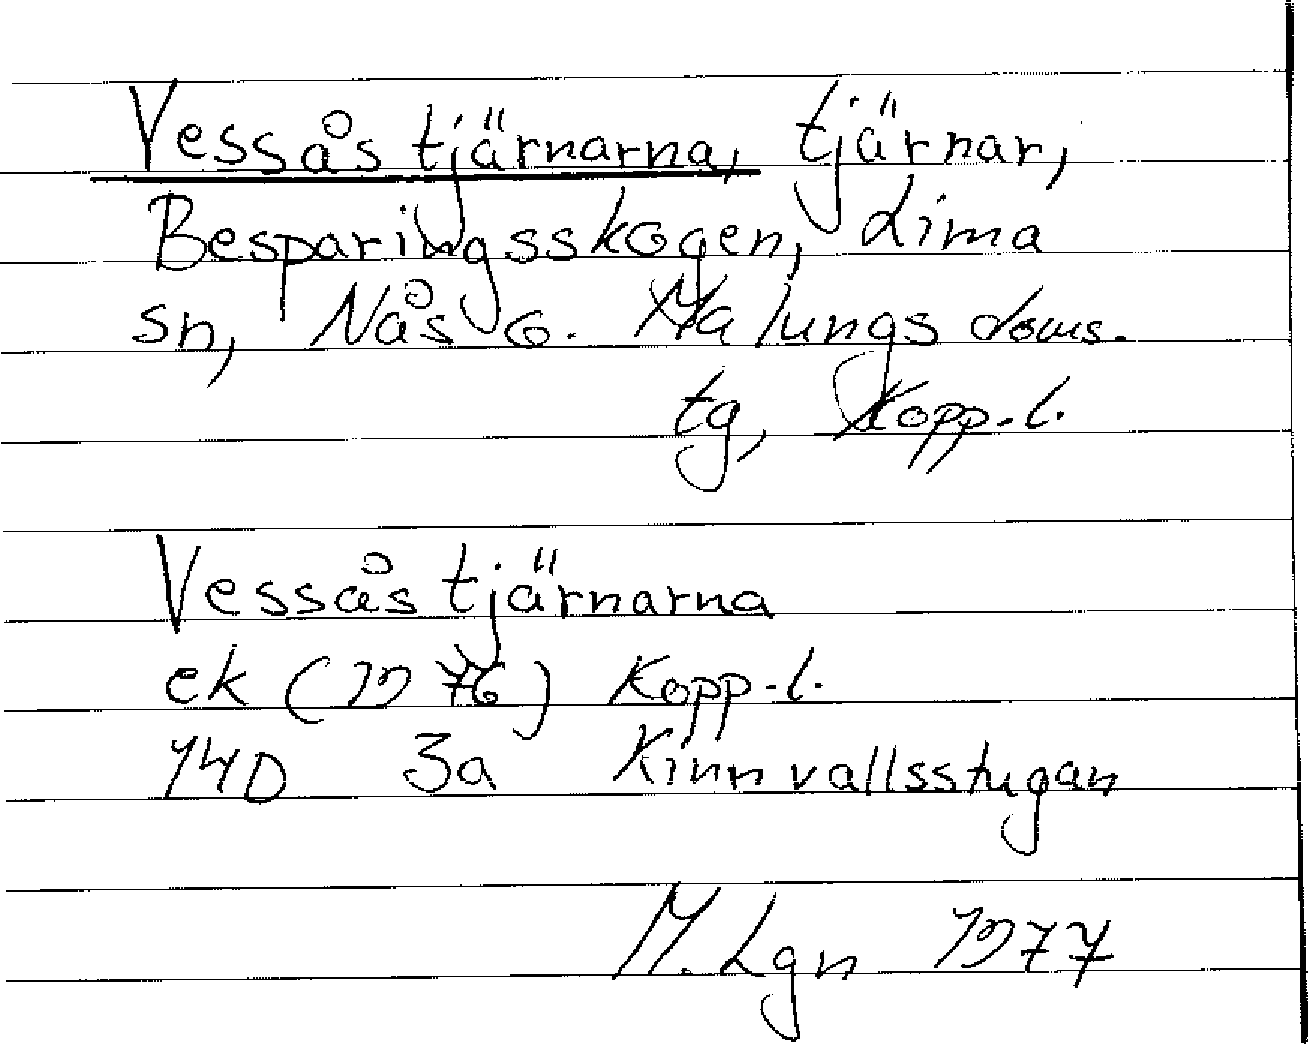 Vessåstjärnarna, tjärnar,
Besparingsskogen, Lima
sn, Nås o. Malungs doms.
tg, Kopp.l.
Vessåstjärnarna
ek (1976) Kopp.l.
14D 3a Kinnvallsstugan
M. Lgn 1977